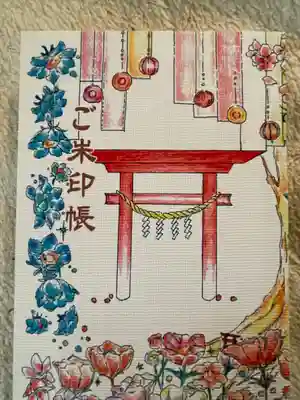 ご朱印帳